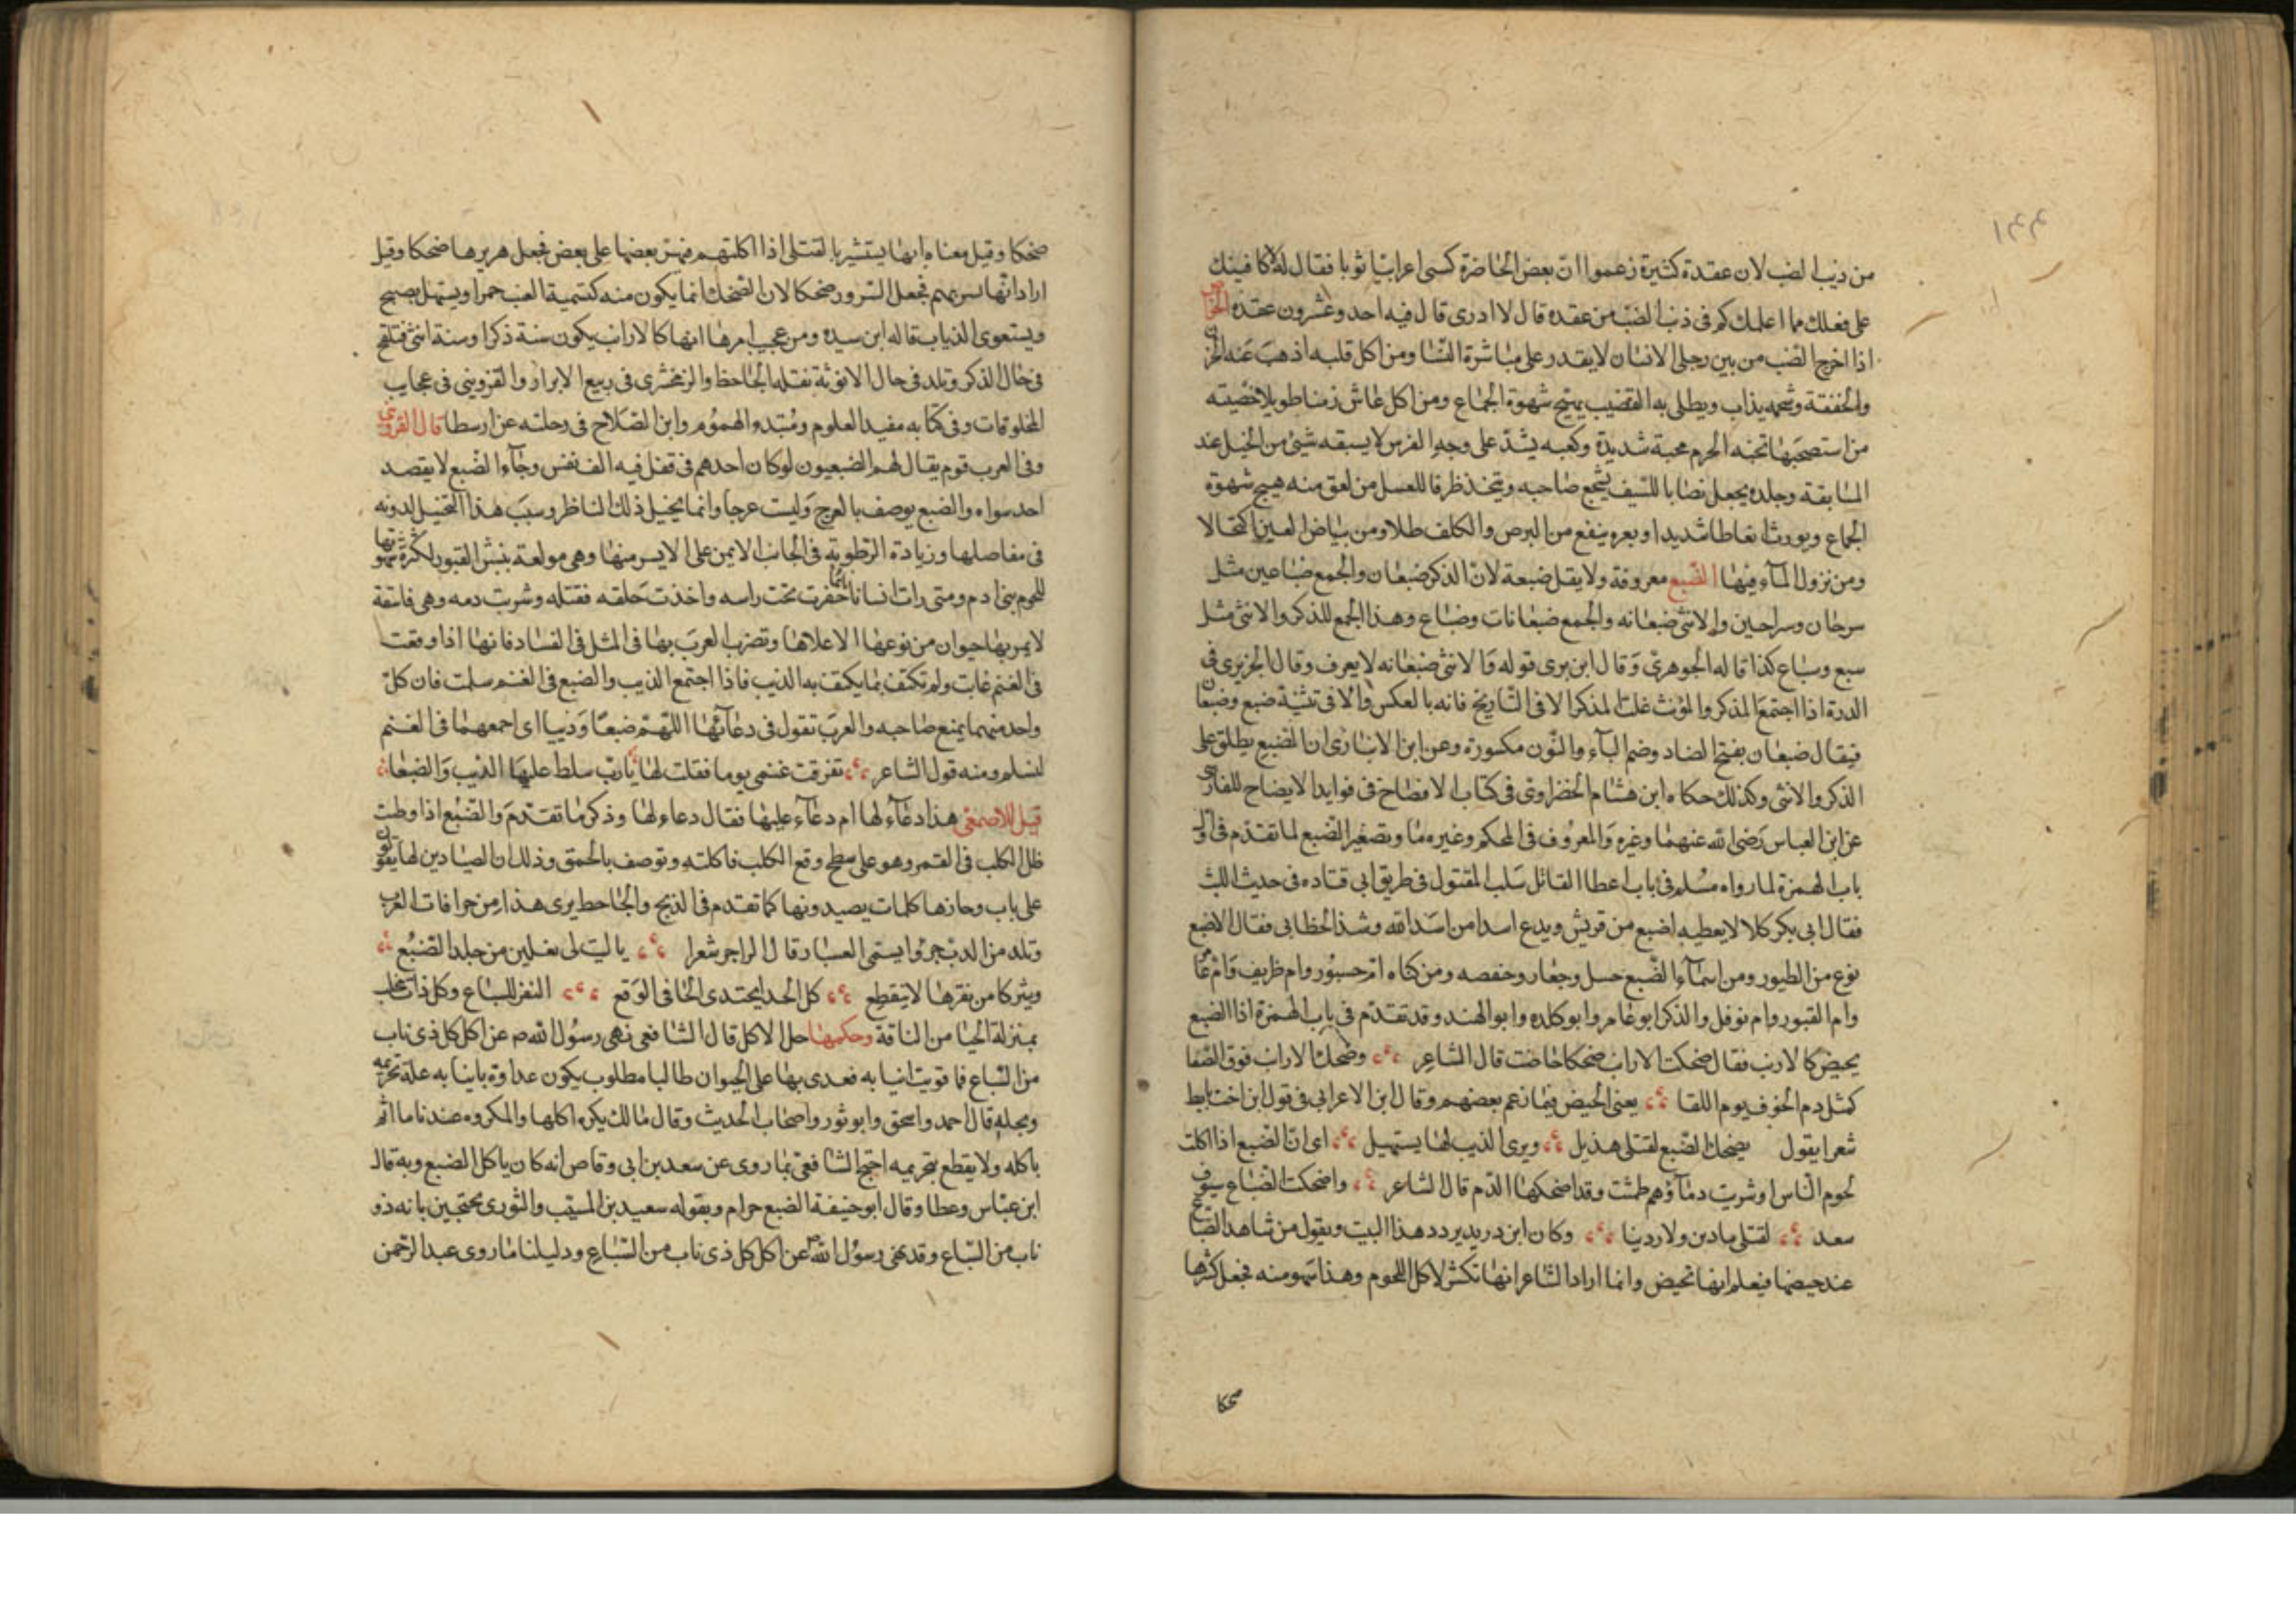 ١٣٣
من ذنب الضب لان عقده كثيرة زعموا ان بعض الحاضرة كسى اعرابيا ثوبا فقال له لاكافينك
على فعلك مما اعلمك كم فى ذنب الضب من عقده قال لا ادرى قال فيه احد وعشرون عقده الخواص
اذا اخرج الضب من بين رجلى الانسان لا يقدر على مباشرة النسا ومن اكل قلبه اذهب عنه الحزن
والخفقة وشحمه يذاب ويطلى به القضيب يهيج شهوة الجماع ومن اكل عاش زمنا طويلا خصيته
من استصحبها تحبه الحرم محبة شديدة وكعبه يشد على وجه الفرس لا يسبقه شئ من الخيل عند
المسابقة وجلده يجعل نصابا للسيف يشجع صاحبه ويتخذ ظرفا للعسل من لعق منه هيج شهوة
الجماع ويورث انعاظا شديدا وبعره ينفع من البرص والكلف طلا ومن بياض العين اكتحالا
ومن نزول المآء فيها الضبع معروفة ولا يقل ضبعة لان الذكر ضبعان والجمع ضباعين مثل
سرحان وسراحين والانثى ضبعانه والجمع ضبعانات وضباع وهذا الجمع للذكر والانثى مثل
سبع وسباع كذا قاله الجوهرى وقال ابن برى قوله والانثى ضبعانه لا يعرف وقال الحريرى فى
الدرة اذا اجتمع المذكر والمونث غلب المذكر الا فى التاريخ فانه بالعكس والا فى تثنية ضبع وضبعان
فيقال ضبعان بفتح الضاد وضم البآء والنون مكسورة وعن ابن الانبارى ان الضبع يطلق على
الذكر والانثى وكذلك حكاه ابن هشام الخضراوى فى كتاب الافصاح فى فوايد الايضاح للفارسى
عن ابن العباس رضى الله عنهما وغيره والمعروف فى المحكم وغيره ما وتصغير الضبع لما تقدم فى اول
باب الهمزة لما رواه مسلم فى باب اعطا القاتل سلب المقتول فى طريق ابى قتاده فى حديث الليث
فقال ابى بكر كلا لا يعطيه اضبع من قريش ويدع اسدا من اسد الله وشذ الخطابى فقال الاضبع
نوع من الطيور ومن اسمآء الضبع حسل وجعار وحفصه ومن كناه ام حسبور وام طريف وام عامر
وام القبور وام نوفل والذكر ابو عامر وابو كلده وابو الهند وقد تقدم فى باب الهمزة اذا الضبع
يحيض كالارنب فقال ضحكت الارانب ضحكا حاضت قال الشاعر وضحك الارانب فوق الصفا
كمثل دم الخوف يوم اللقا يعنى الحيض فيما زعم بعضهم وقال ابن الاعرابى فى قول ابن اخت تابط
شعرا يقول يضحك الضبع لقتلى هذيل ويرى الذيب لها يستهيل اى ان الضبع اذا اكلت
لحوم الناس او شربت دمآؤهم طمثت وقد اضحكها الدم قال الشاعر واضحكت الضباع سيوف
سعد لقتلى مادن ولا ردينا وكان ابن دريد يردد هذا البيت ويقول من شاهد الضباع
عند حيضها فيعلم انها تحيض وانما اراد الشاعر انها تكشر لاكل اللحوم وهذا سهو منه فجعل كشرها
ضحكا
ضحكا وقيل معناه انها يستبشر بالقتلى اذا اكلتهم فيهر بعضها على بعض فجعل هريرها ضحكا وقيل
اراد انها تسر بهم فجعل السرور ضحكا لان الضحك انما يكون منه كتسمية العنب خمرا ويستهل يصيح
ويستعوى الذياب قاله ابن سيده ومن عجيب امرها انها كالارانب يكون سنة ذكرا وسنة انثى فتلقح
فى حال الذكر وتلد فى حال الانوثة نقله الجاحظ والزمخشرى فى ربيع الابرار والقزوينى فى عجايب
المخلوقات وفى كتابه مفيد العلوم ومبيد الهموم وابن الصلاح فى رحلته عن ارسطا قال القزوينى
وفى العرب قوم يقال لهم الضبعيون لو كان احدهم فى قفل فيه الف نفس وجآء الضبع لا يقصد
احد سواه والضبع يوصف بالعرج وليست عرجا وانما يخيل ذلك للناظر وسبب هذا التخيل لدونه
فى مفاصلها وزيادة الرطوبة فى الجانب الايمن على الايسر منها وهى مولعة بنبش القبور لكثرة شهوتها
للحوم بنى ادم ومتى رات انسانا نائما حفرت تحت راسه واخذت حلقه فقتله وشربت دمه وهى فاسقة
لا يمر بها حيوان من نوعها الا علاها وتضرب العرب بها فى المثل فى الفساد فانها اذا وقعت
فى الغنم عاثت ولم تكتف بما يكتف به الذيب فاذا اجتمع الذيب والضبع فى الغنم سلمت فان كل
واحد منهما يمنع صاحبه والعرب تقول فى دعآئها اللهم ضبعا وذيبا اى اجمعهما فى الغنم
لتسلم ومنه قول الشاعر تفرقت غنمى يوما فقلت لها يا رب سلط عليها الذيب والضبعا
قيل للاصمعى هذا دعآء لها ام دعآء عليها فقال دعاء لها وذكر ما تقدم والضبع اذا وطئت
ظل الكلب فى القمر وهو على سطح وقع الكلب فاكلته وتوصف بالحمق وذلك ان الصيادين لها يقولون
على باب وجارها كلمات يصيدونها كما تقدم فى الذيخ والجاحظ يرى هذا من خرافات العرب
وتلد من الدب جروا يسمى العسبار قال الراجز شعرا يا ليت لى نعلين من جلد الضبع
وشركا من نفرها لا ينقطع كل الحدا يحتدى الحافى الوقع النفر للسباع وكل ذات مخلب
بمنزلة الحيا من الناقة وحكمها حل الاكل قال الشافعى نهى رسول الله صم عن اكل كل ذى ناب
من السباع فما قويت انيابه فعدى بها على الحيوان طالبا مطلوب يكون عداوة بانيابه علة تحريمه
وبحله قال احمد واسحق وابو ثور واصحاب الحديث وقال مالك يكره اكلها والمكروه عند ناما اثم
باكله ولا يقطع بتحريمه احتج الشافعى بما روى عن سعد بن ابى وقاص انه كان ياكل الضبع وبه قال
ابن عباس وعطا وقال ابو حنيفة الضبع حرام وبقوله سعيد بن المسيب والثورى محتجين بانه ذو
ناب من السباع وقد نهى رسول الله عن اكل كل ذى ناب من السباع ودليلنا ما روى عبد الرحمن